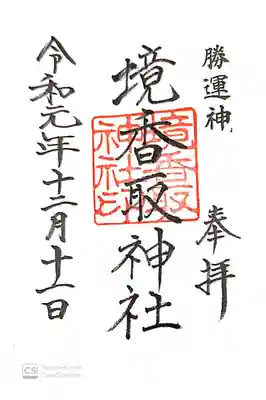 勝運神
奉拝
境香取神社
境香取神社印
令和元年十二月十一日
CS